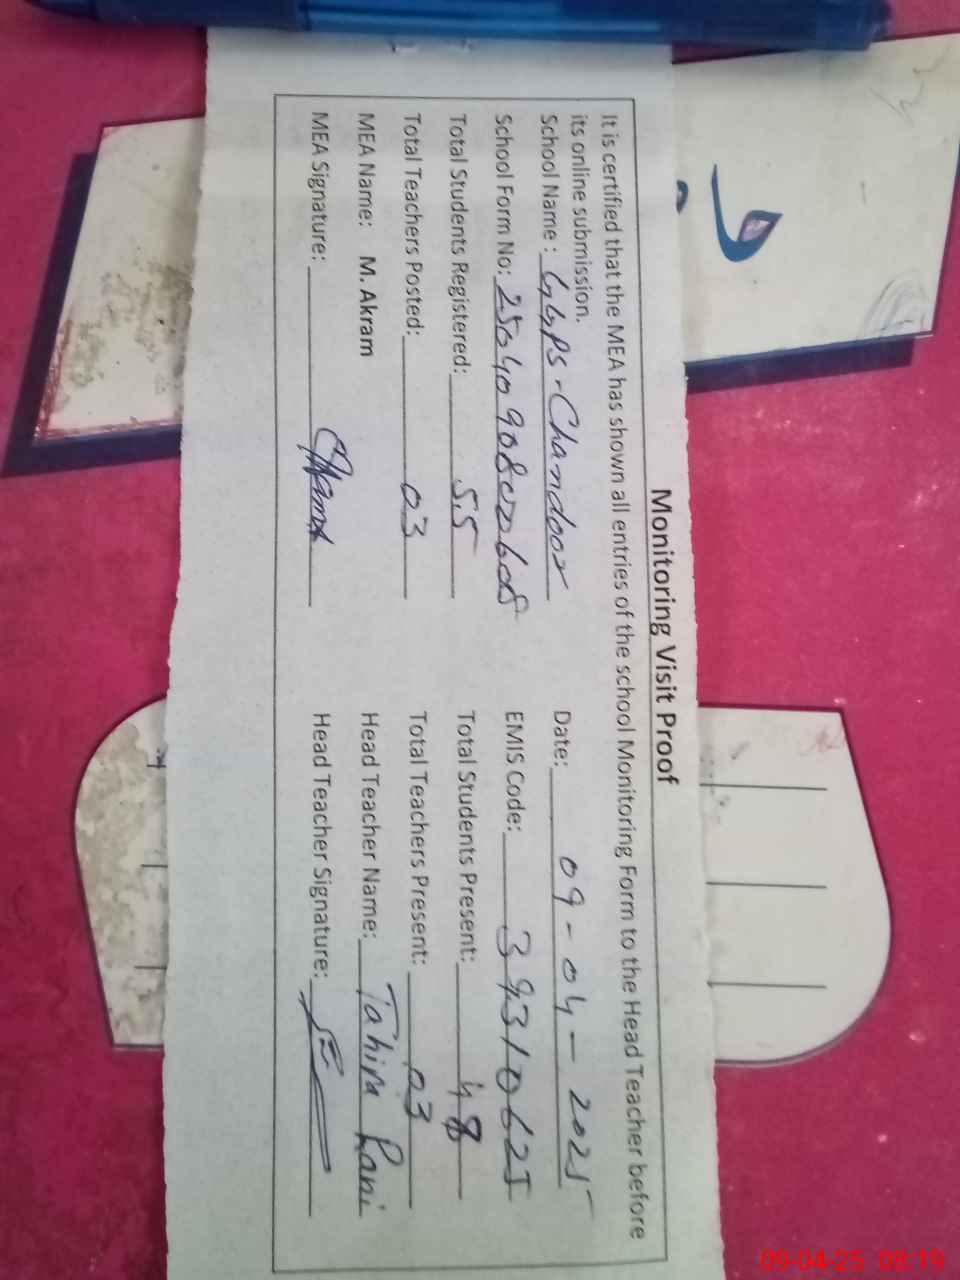 Monitoring Visit Proof
It is certified that the MEA has shown all entries of the school Monitoring Form to the Head Teacher before
its online submission.
School Name : GGPS - Chandoor Date: 09-04-2025
School Form No: EMIS Code: 39310625
Total Students Registered: 55 Total Students Present: 48
Total Teachers Posted: 03 Total Teachers Present: 03
MEA Name: M. Akram Head Teacher Name: Tahira Rani
MEA Signature: Head Teacher Signature:
09-04-25 08:19